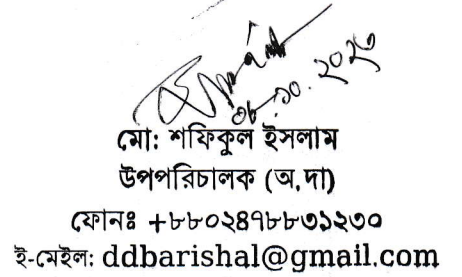 ০৮.১০.২০২৩
মো: শফিকুল ইসলাম
উপপরিচালক (অ.দা)
ফোনঃ +৮৮০২৪৭৮৮৩১২৩০
ই-মেইল: ddbarishal@gmail.com